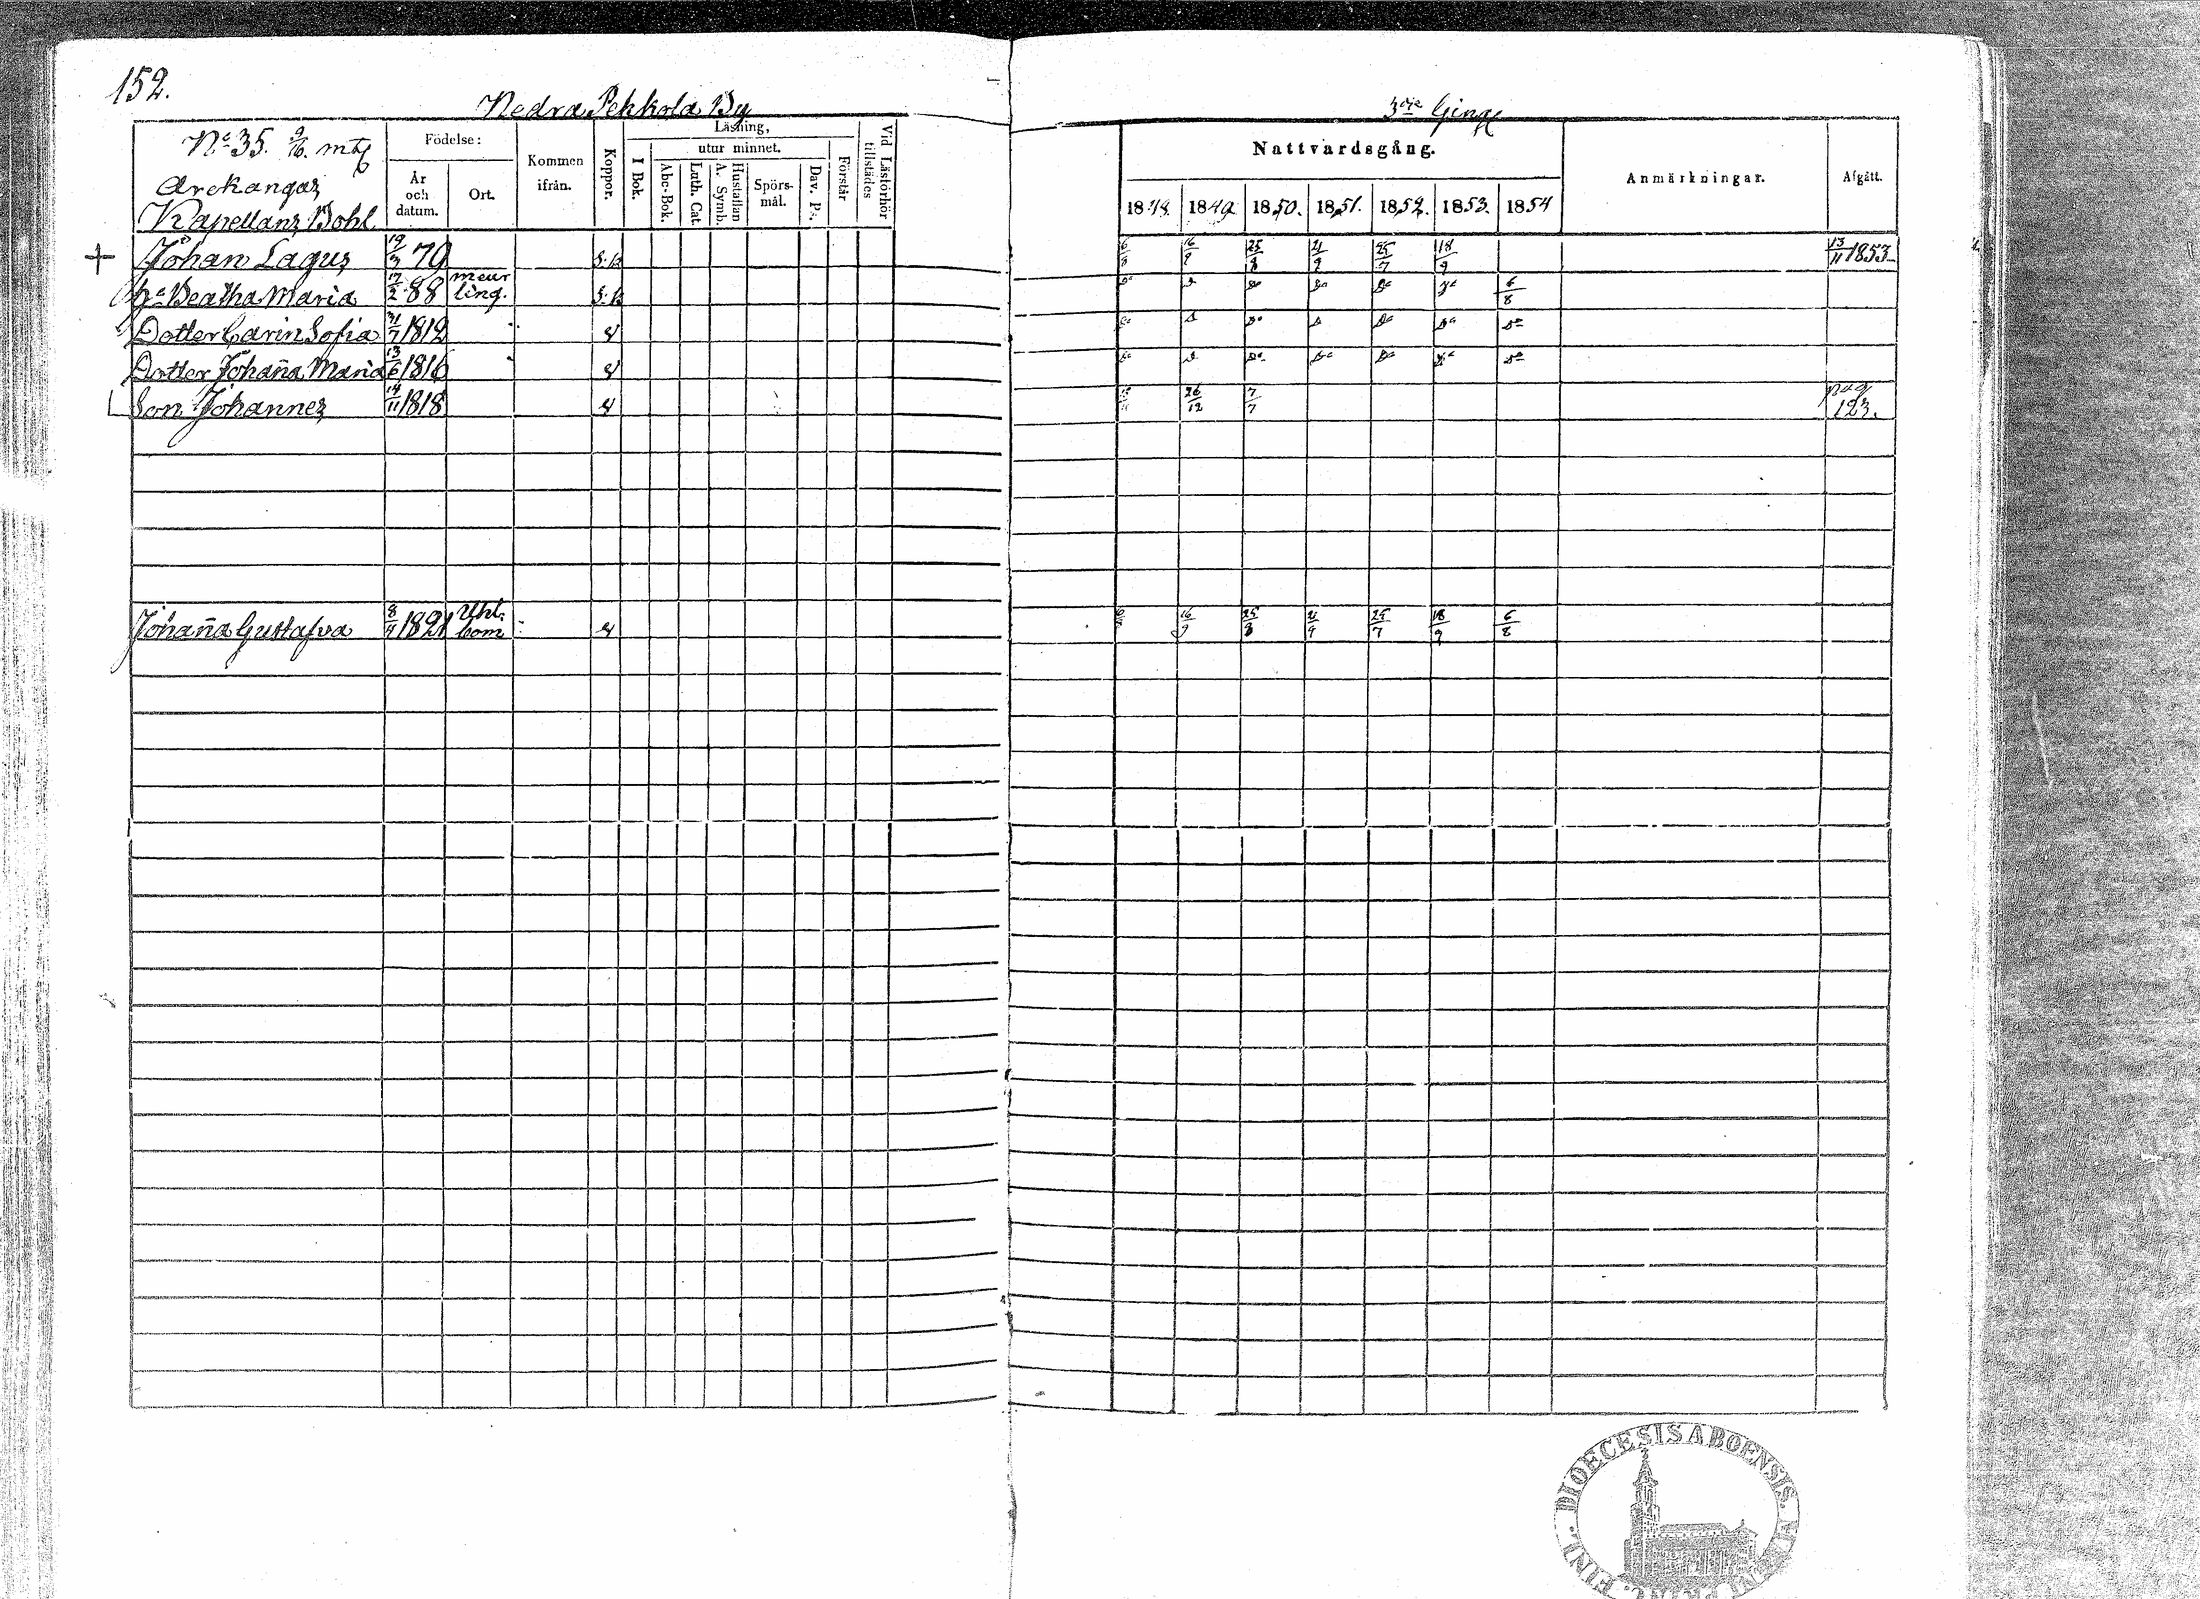 152.
Nedra Pekkola By
3die Ging
No 35. 9/16. mtl
Arckangaz
Kapellanz Bohl
Födelse:
År och datum.
Ort.
Kommen ifrån.
Koppor.
Läsning,
utur minnet.
I Bok.
Abc-Bok.
Luth. Cat.
A. Symb.
Hustaflan
Spörs-mål.
Dav. Ps.
Förstår
Vid Läsförhör tillstädes
Nattvardsgång.
1848. 1849 1850. 1851. 1852. 1853. 1854
Anmärkningar.
Afgått.
Johan Lagus 19/3 70 16/9 25/8 21/9 25/7 18/9 13/11 1853
Hu Beatha Maria 17/2 88 meur ling. 6/8
Dotter Carin Sofia 31/7 1812
Dotter Johana Maria 13/6 1816
Son Johannez 14/11 1818 26/12 7/7 pag 123.
Johana Gustafva 8/4 1821 Uhl. bom 16/9 25/8 21/9 25/7 18/9 6/8
DIOECESIS ABOENSIS.